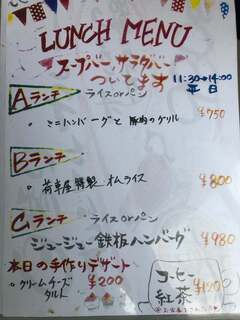 LUNCH MENU
スープバー サラダバー
ついてます 11:30→14:00
平日
Aランチ ライスorパン
・ミニハンバーグと 豚肉のグリル ¥750
Bランチ
・荷車屋特製 オムライス ¥800
Cランチ ライスorパン
ジュージュー鉄板ハンバーグ ¥980
本日の手作りデザート ¥200
・クリームチーズ
タルト
コーヒー
紅茶 ¥120